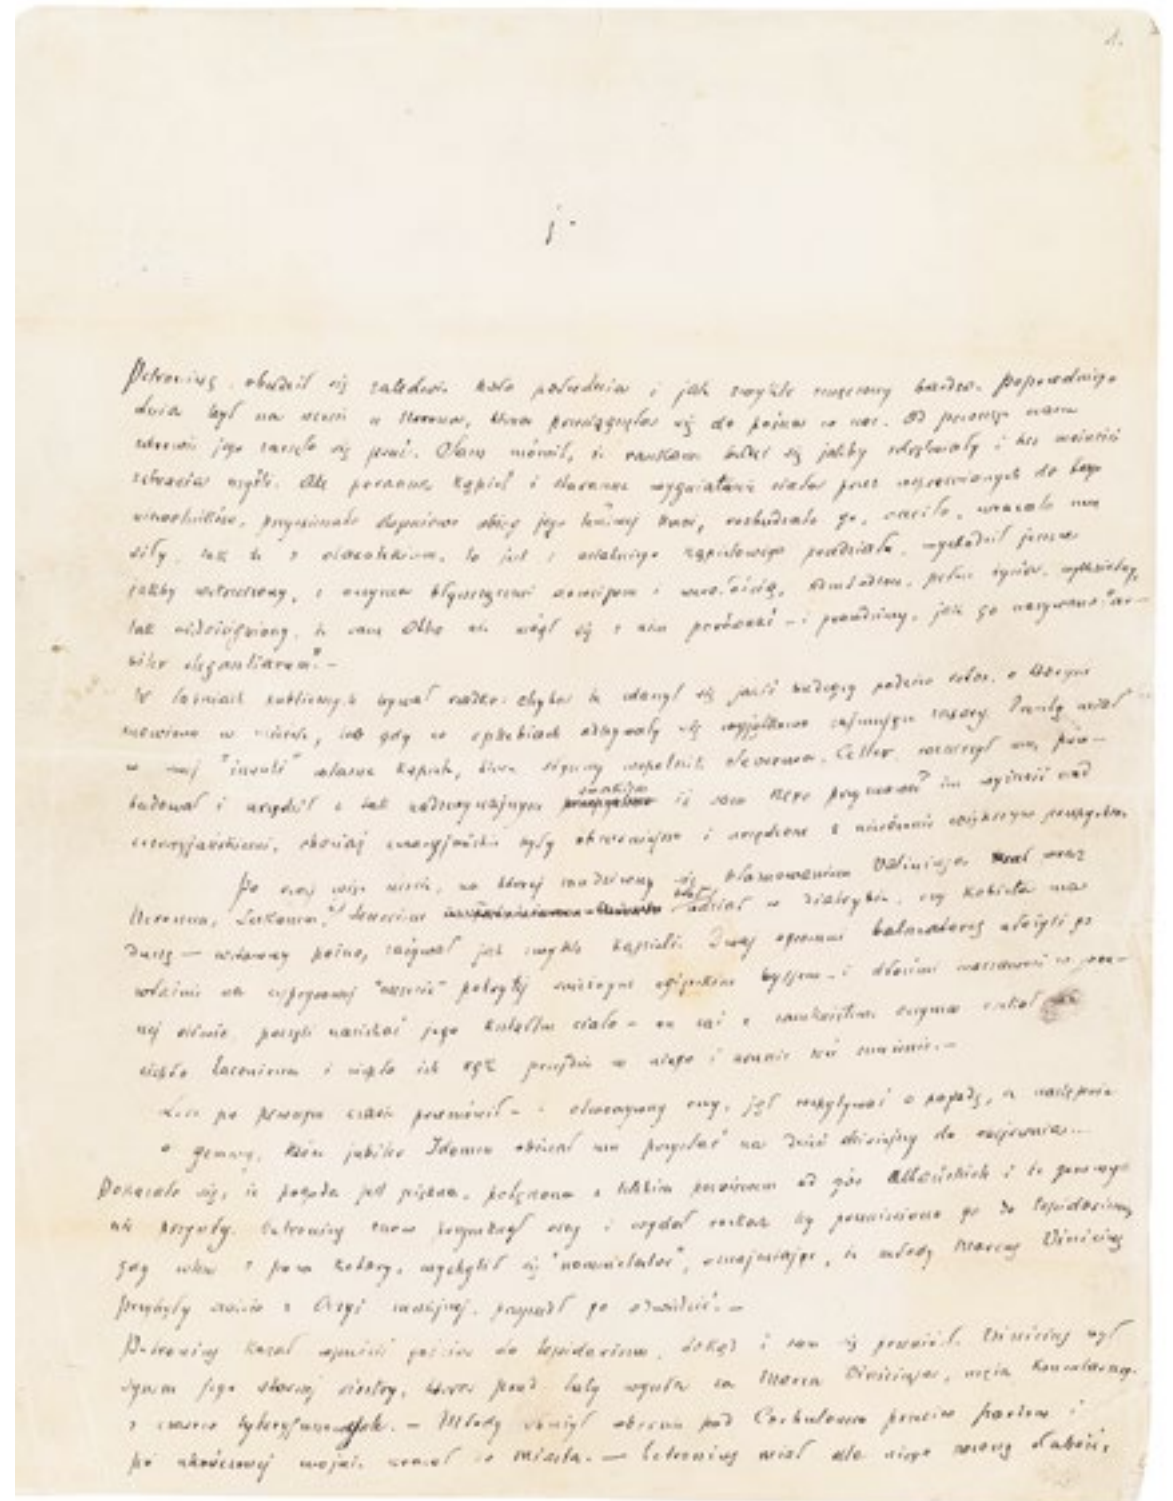 1.
I.
Petroniusz obudził się zaledwie koło południa i jak zwykle zmęczony bardzo. Poprzedniego
dnia był na uczcie u Nerona, która przeciągnęła się do późna w noc. Od pewnego czasu
zdrowie jego zaczęło się psuć. Sam mówił, iż rankami budzi się jakby zdrętwiały i bez możności
zebrania myśli. Ale poranna kąpiel i staranne wygniatanie ciała przez wprawionych do tego
niewolników, przyspieszało stopniowo obieg jego leniwej krwi, rozbudzało go, cuciło, wracało mu
siły, tak że z elaeothesium, to jest z ostatniego kąpielowego przedziału, wychodził jeszcze
jakby wskrzeszony, z oczyma błyszczącemi dowcipem i wesołością, odmłodzon, pełen życia, wykwintny,
tak niedościgniony, że sam Otho nie mógł się z nim porównać – i prawdziwy, jak go nazywano: "ar-
biter elegantiarum". –
W łaźniach publicznych bywał rzadko: chyba że zdarzył się jakiś budzący podziw retor, o którym
mówiono w mieście, lub gdy w ephebiach odbywały się wyjątkowo zajmujące zapasy. Zresztą miał
w swej "insuli" własne kąpiele, które słynny wspólnik Severusa, Celler, rozszerzył mu, prze-
budował i urządził z tak nadzwyczajnym smakiem iż sam Nero przyznawał im wyższość nad
cezarjańskiemi, chociaż cezarjańskie były obszerniejsze i urządzone z nierównie większym przepychem.
Po owej więc uczcie, na której znudziwszy się błaznowaniem Vatiniusza, brał wraz
Neronem, Lukanem i Senecione udział w diatrybie, czy kobieta ma
duszę — wstawszy późno, zażywał jak zwykle kąpieli. Dwaj ogromni balneatorzy złożyli go
właśnie na cyprysowej "mensie" pokrytej śnieżnym egipskim byssem – i dłońmi maczanemi w won-
nej oliwie, poczęli nacierać jego kształtne ciało – on zaś z zamkniętemi oczyma czekał aż
ciepło laconicum i ciepło ich rąk przejdzie w niego i usunie zeń znużenie. –
Lecz po pewnym czasie przemówił – i otworzywszy oczy, jął rozpytywać o pogodę, a następnie
o gemmy, które jubiler Idomen obiecał mu przysłać na dzień dzisiejszy do obejrzenia...
Pokazało się, iż pogoda jest piękna, połączona z lekkim powiewem od gór Albańskich i że gemmy
nie przyszły. Petroniusz znów przymknął oczy i wydał rozkaz by przeniesiono go do tepidarium,
gdy wtem z poza kotary, wychylił się "nomenclator", oznajmiając, iż młody Marcus Vinicius
przybyły świeżo z Azyi mniejszej, przyszedł go odwiedzić. –
Petroniusz kazał wpuścić gościa do tepidarium, dokąd i sam się przeniósł. Vinicius był
synem jego starszej siostry, która przed laty wyszła za Marca Viniciusza, męża konsularnego
z czasów tyberyuszowych. – Młody służył obecnie pod Corbulonem przeciw Partom i
po ukończonej wojnie wracał do miasta. — Petroniusz miał dla niego pewną słabość,